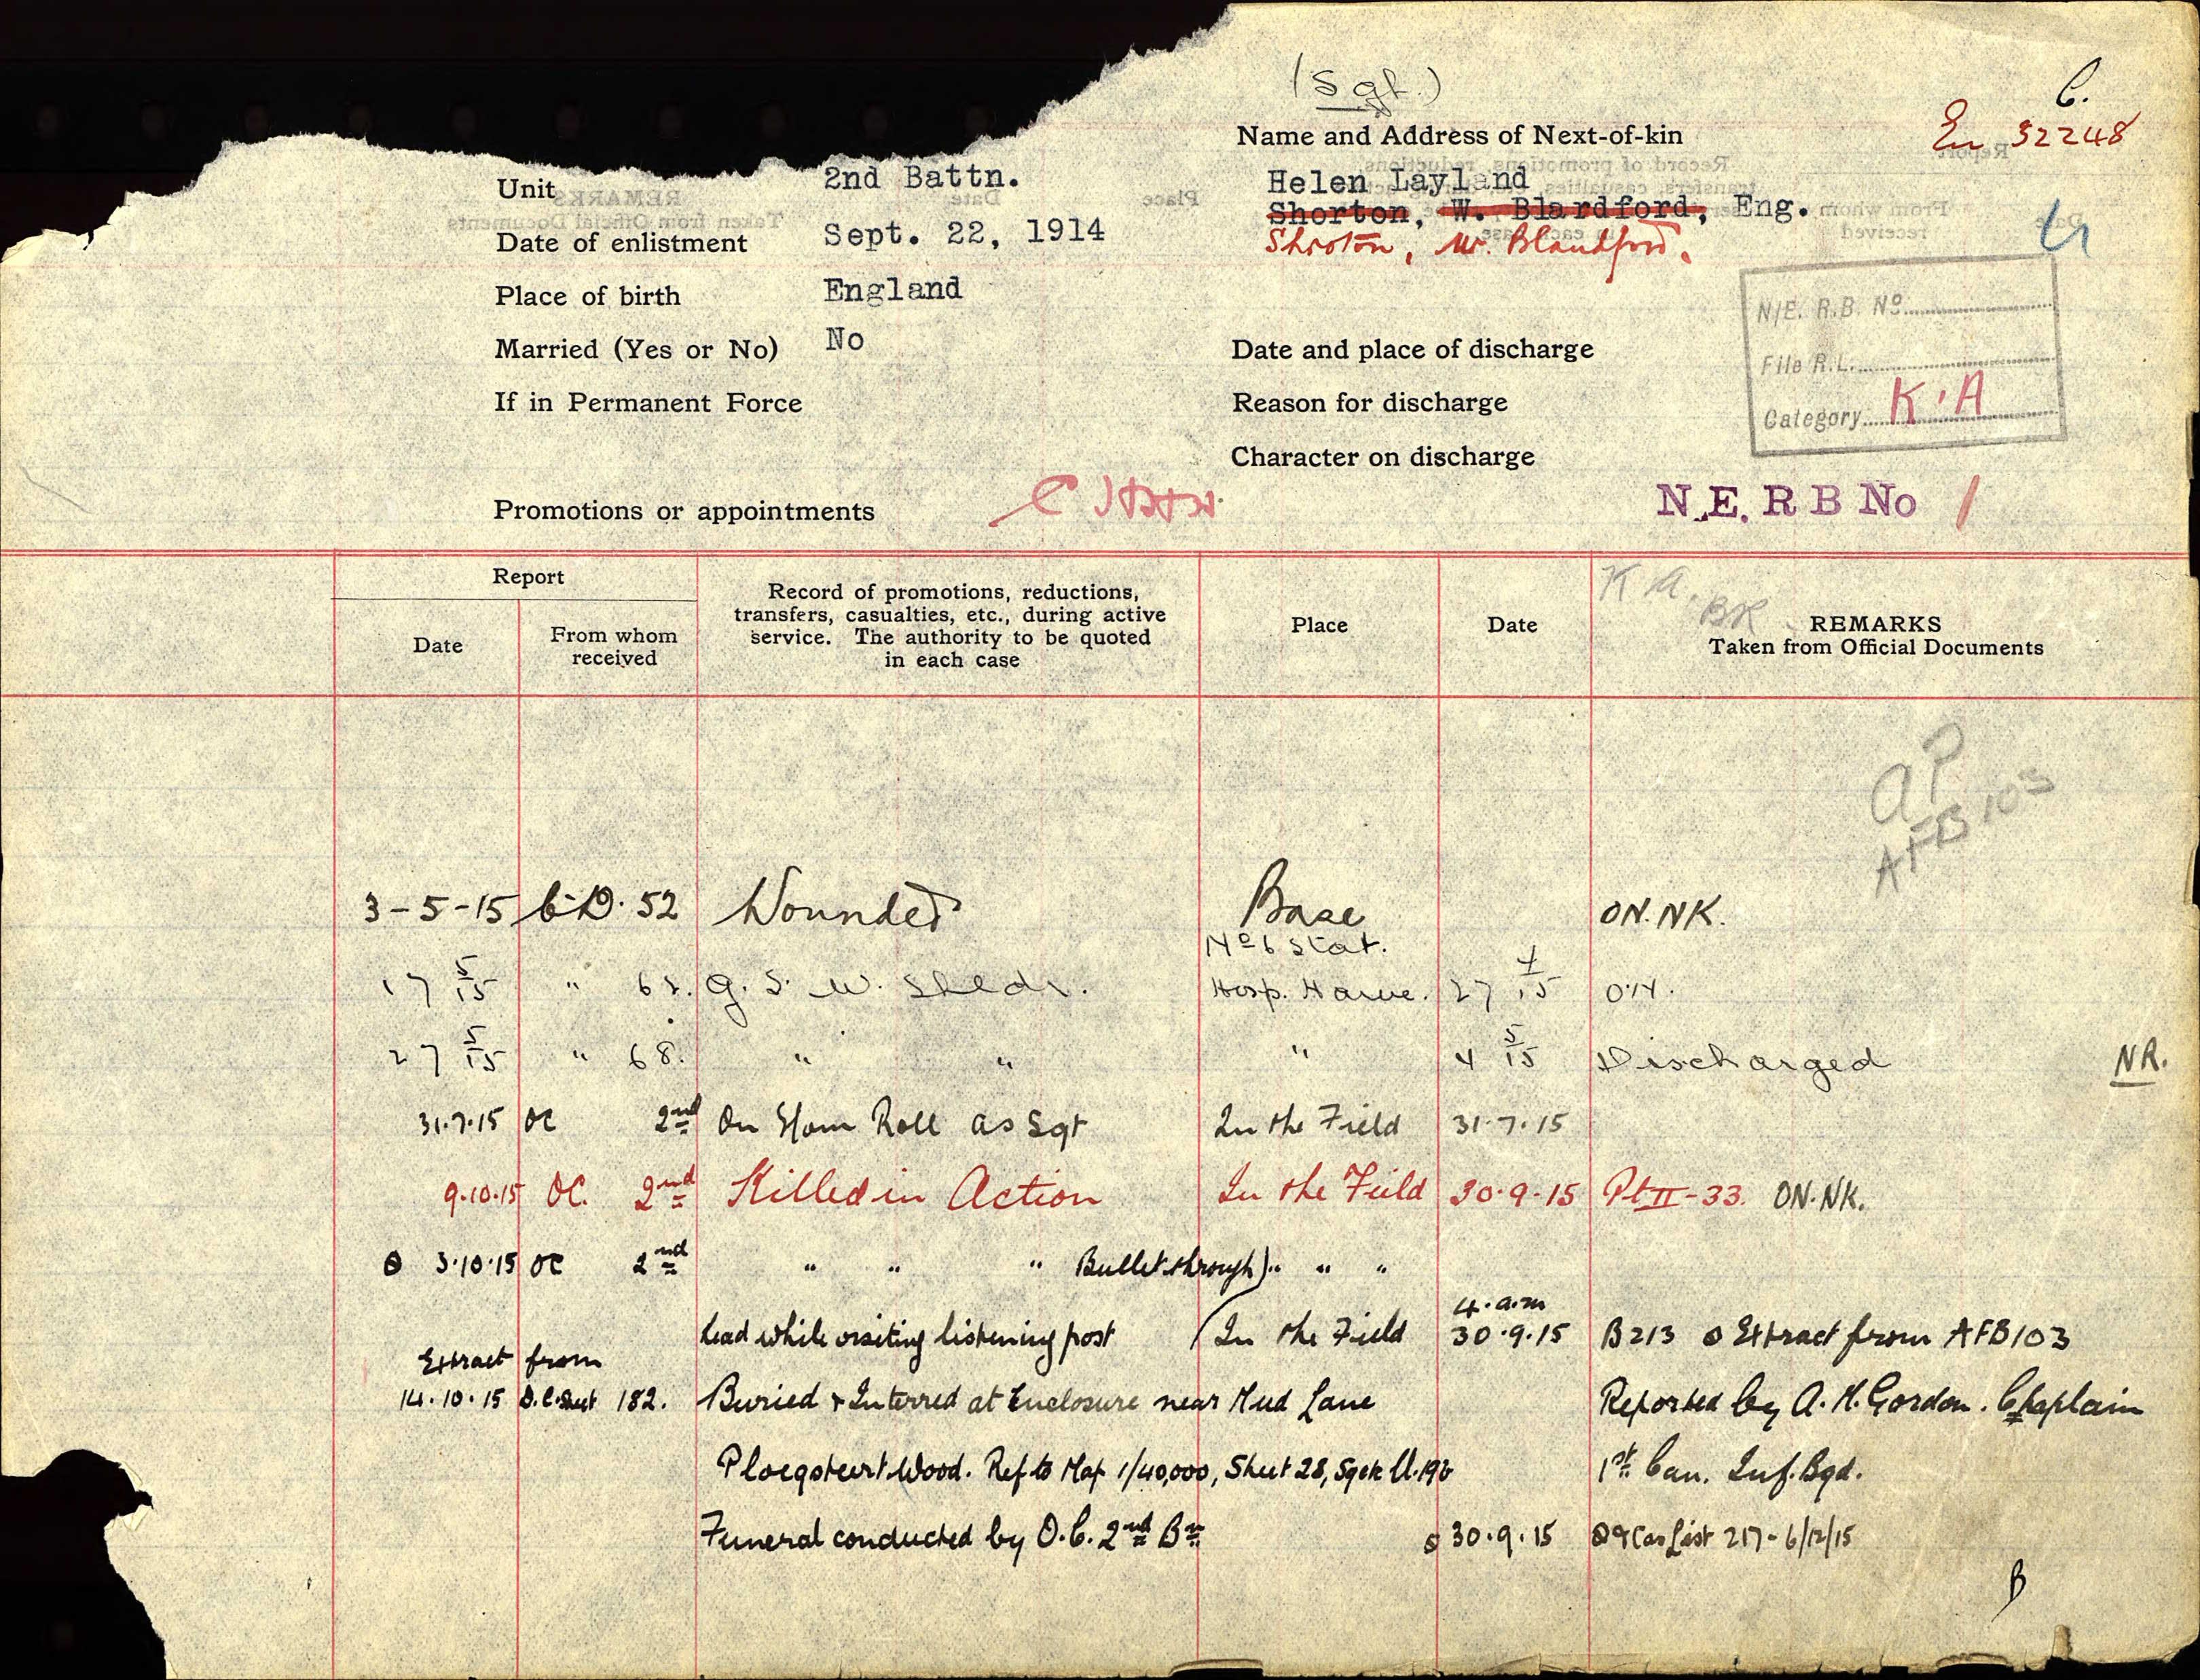 (Sgt.)
C.
En 32248
Name and Address of Next-of-kin
Unit 2nd Battn.
Helen Layland
Shorton, W. Blardford, Eng.
Date of enlistment Sept. 22, 1914
Shroton, W. Blandford.
Place of birth England
N/E. R.B. No
Married (Yes or No) No
Date and place of discharge
File R.L.
If in Permanent Force
Reason for discharge
Category K.A
Character on discharge
Promotions or appointments
N.E. R B No 1
Report
Date
From whom
received
Record of promotions, reductions,
transfers, casualties, etc., during active
service. The authority to be quoted
in each case
Place
Date
K A. BR
REMARKS
Taken from Official Documents
AFB 103
3-5-15 C.D. 52 Wounded Base ON. NK.
No 6 Stat.
17 5/15 " 62. G. S. W. Sldr. Hosp. Havre. 27 4/15 O.N.
27 5/15 " 68. " " " 4 5/15 Discharged NR.
31.7.15 OC 2nd On Nom Roll as Sgt In the Field 31.7.15
9.10.15 OC. 2nd Killed in Action In the Field 30.9.15 Pt II-33. ON. NK.
3.10.15 OC 2nd " " " Bullet through) " " "
head while visiting listening post (In the Field 4.a.m 30.9.15 B213 Extract from AFB103
Extract from
14.10.15 D.C. Sheet 182. Buried & Interred at Enclosure near Mud Lane Reported by A. M. Gordon. Chaplain
Ploegsteert Wood. Ref to Map 1/40,000, Sheet 28, U.19b 1st Can. Inf. Bgd.
Funeral conducted by O.C. 2nd Bn 30.9.15 Cas List 217-6/12/15
B